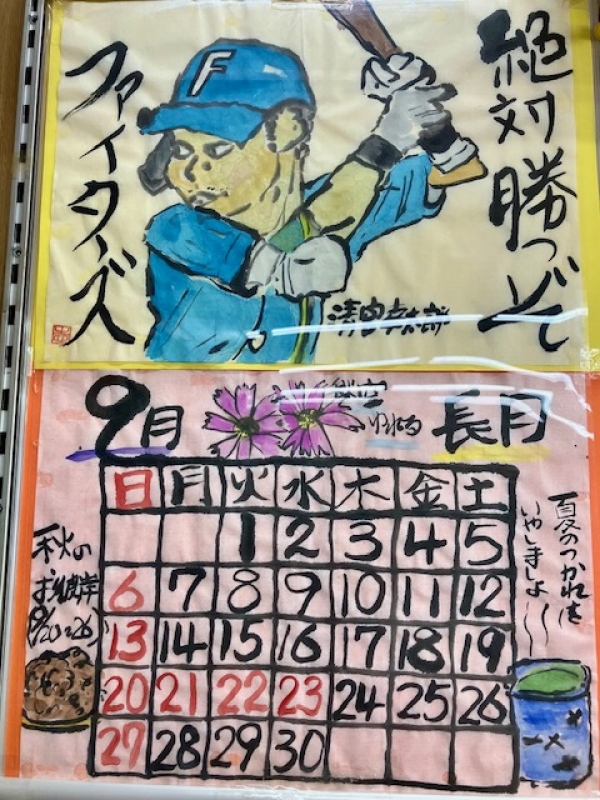 絶対勝つぞ
ファイターズ
F
清宮幸太郎
9月
長月
日 月 火 水 木 金 土
1 2 3 4 5
6 7 8 9 10 11 12
13 14 15 16 17 18 19
20 21 22 23 24 25 26
27 28 29 30
秋の
お彼岸
9/20~26
夏のつかれを
いやしましょ〜